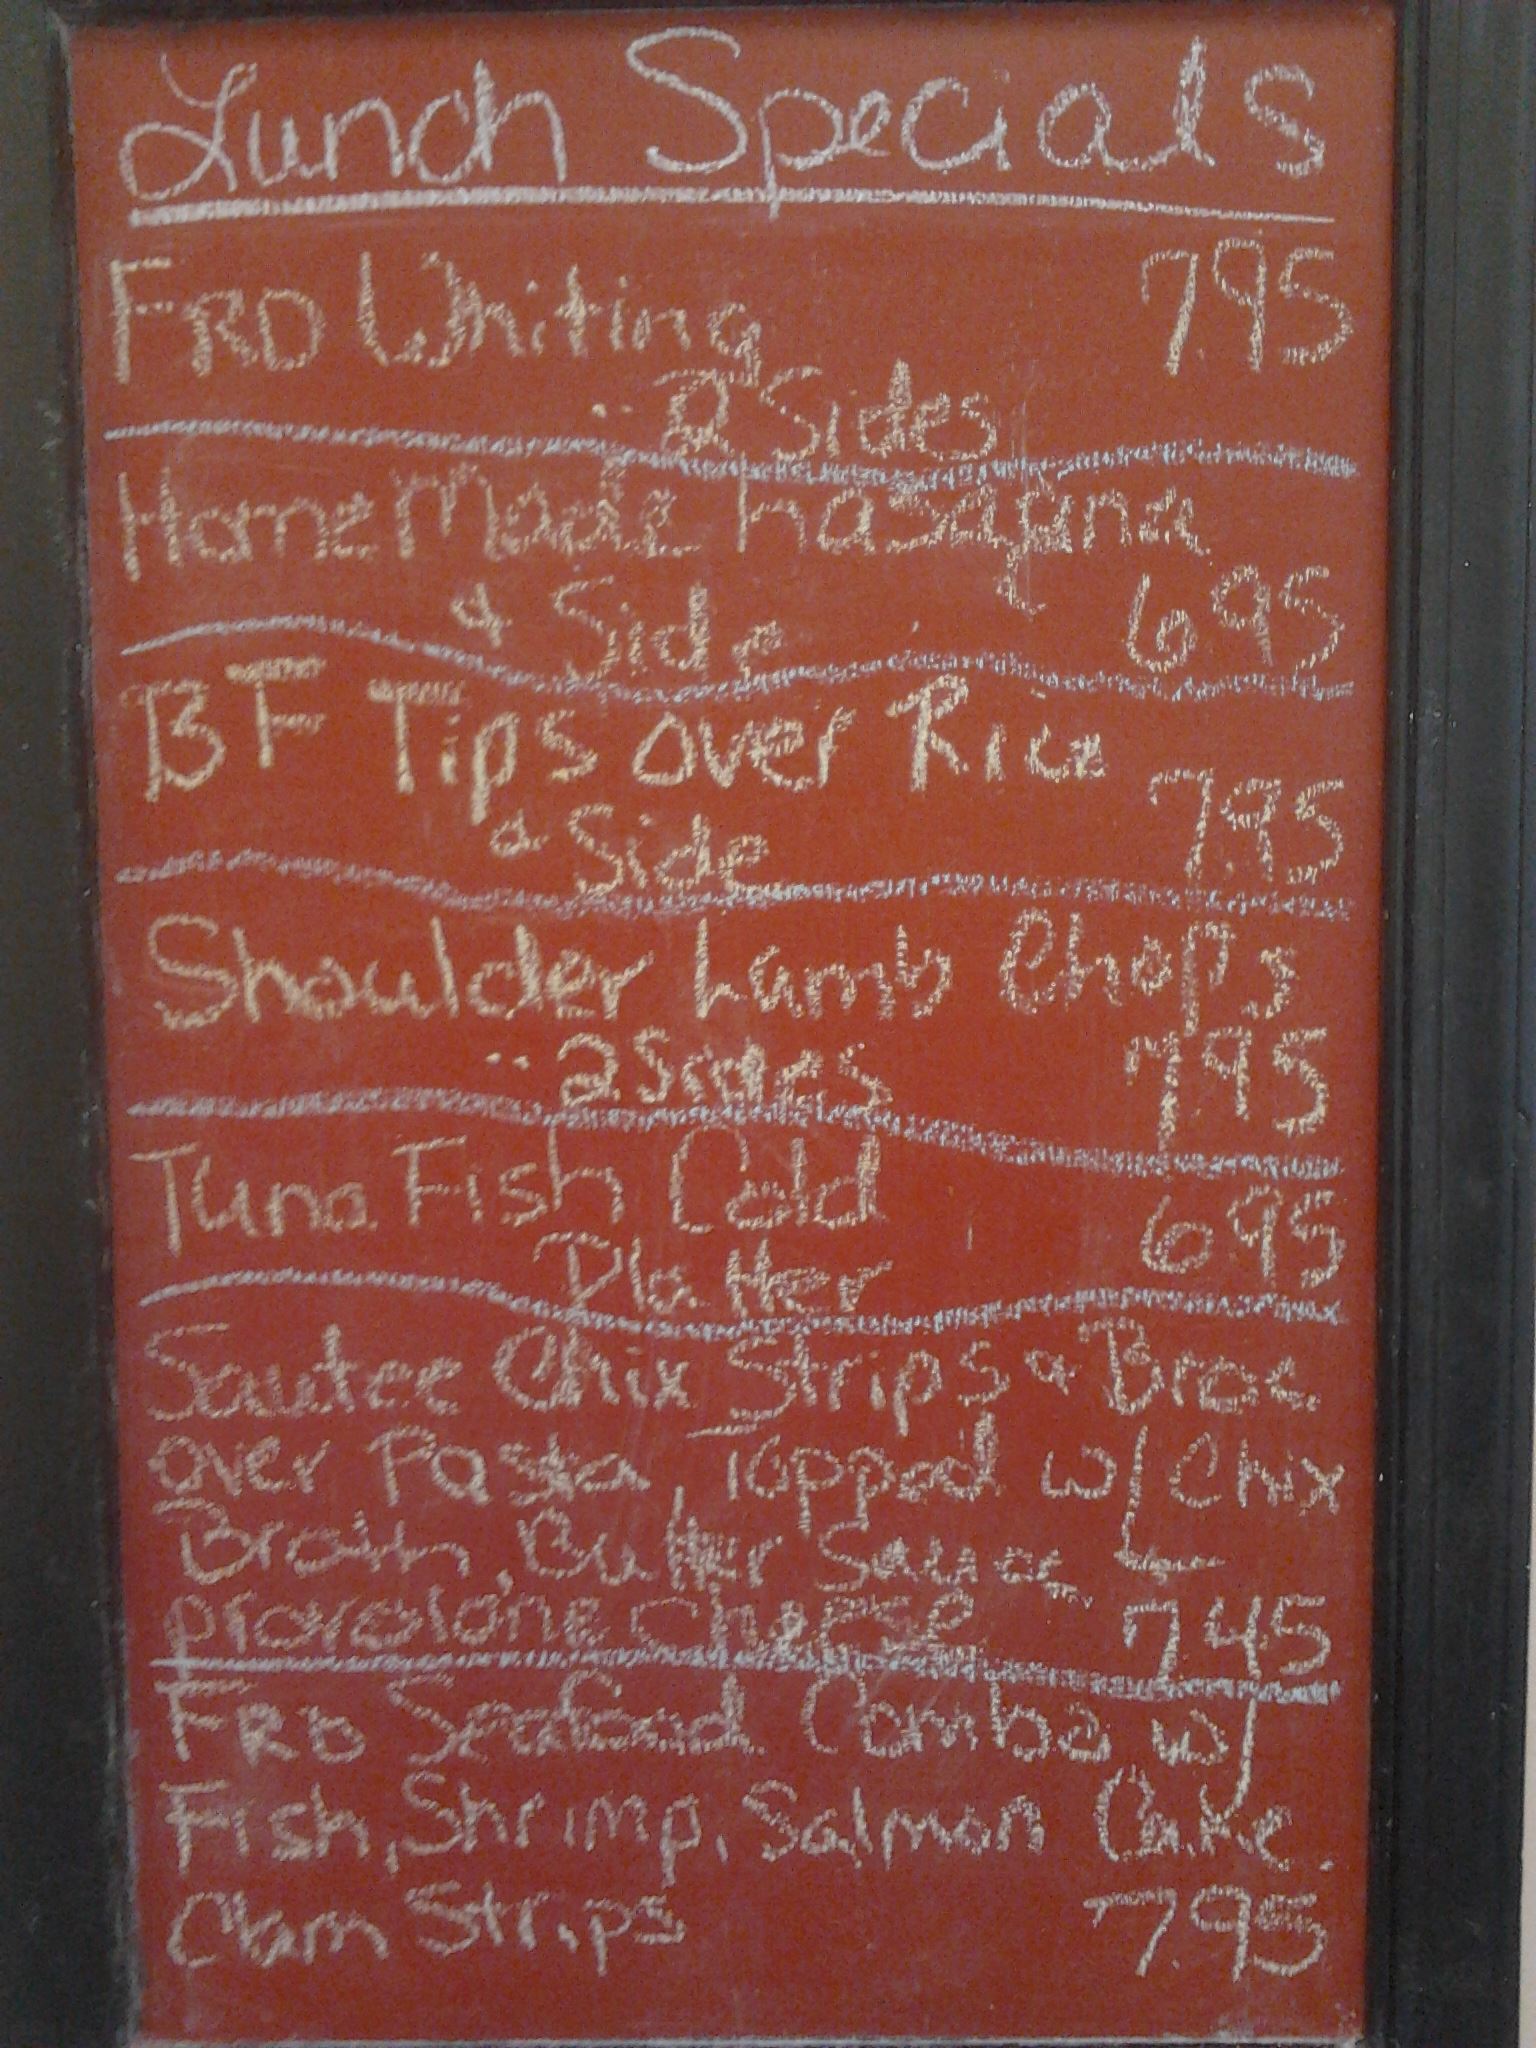 Lunch Specials
FRD Whiting 7.95
.. 2 Sides
HomeMade Lasagna
& Side 6.95
BF Tips over Rice
& Side 7.95
Shoulder Lamb Chops
.. 2 Sides 7.95
Tuna Fish Cold
Platter 6.95
Sautee Chix Strips & Broc
over Pasta, Topped w/ Chix
Broth, Butter Sauce,
provolone cheese 7.45
FRD Seafood Combo w/
Fish, Shrimp, Salmon Cake.
Clam Strips 7.95